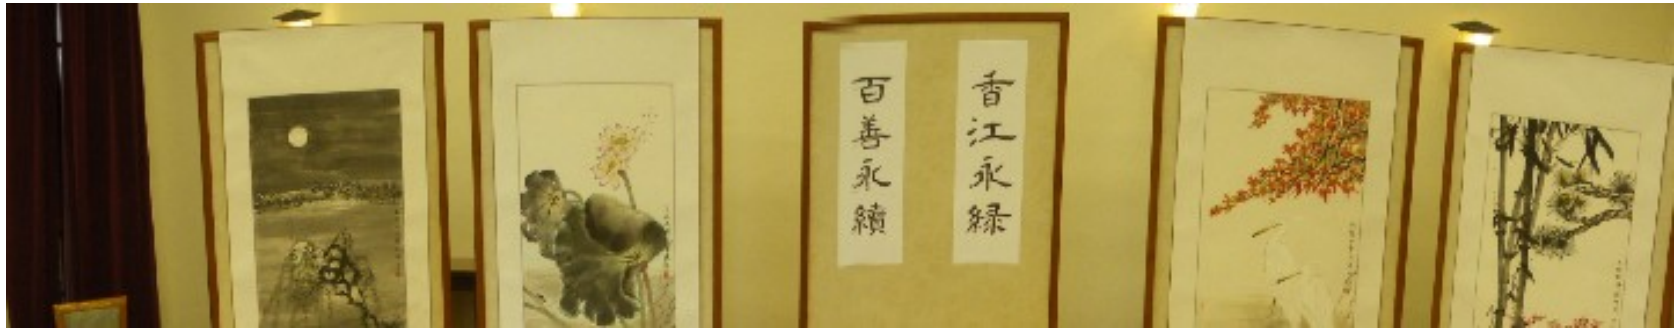 香江永緑
百善永續